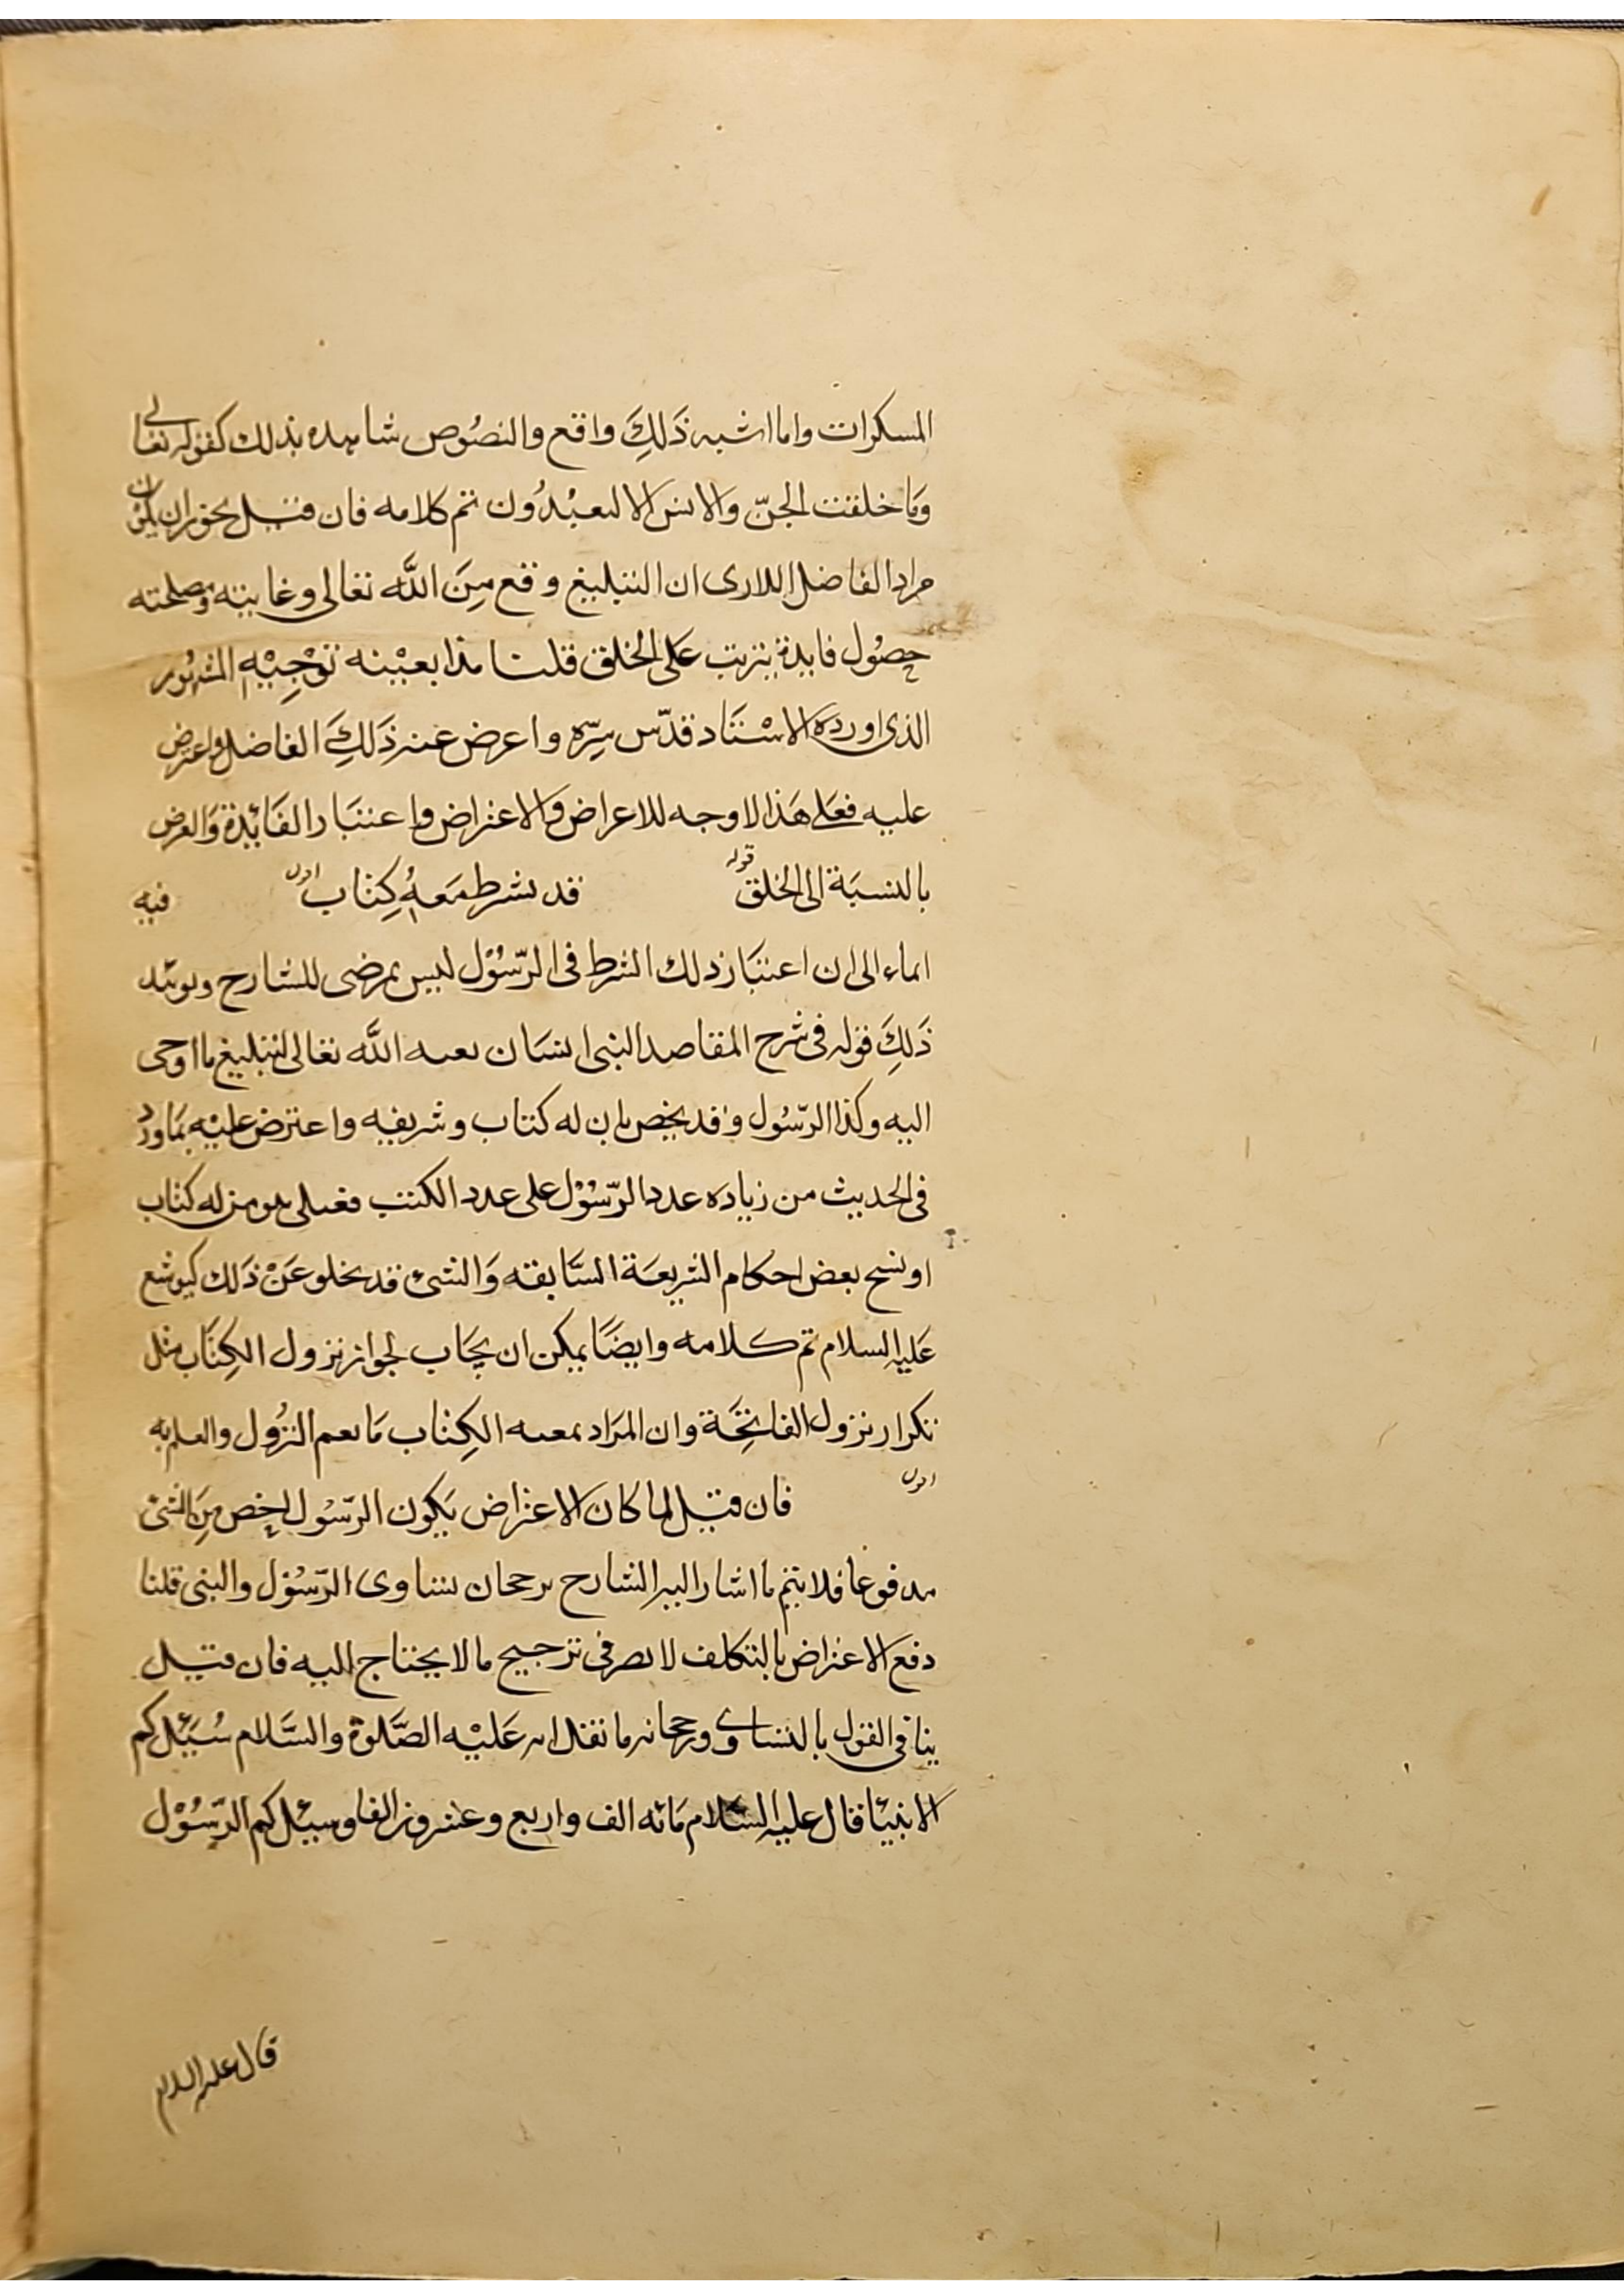 المسكرات واما اشبه ذَلِكَ واقع والنصُوص شاهده بذلك كقوله تعالى
وَمَا خلقت الجنّ والانس الا ليعبْدُون تم كلامه فان قيل يجوز ان يكون
مراد الفاضل اللارى ان التبليغ وقع مِنَ اللَّه تعالى وغايته ومصلحته
حصُول فايدة يترتب عَلى الخلق قلنا هذا بعيْنه توْجِيْهِ المشهور
الذى اورده الاسْتَاد قدّس سِرّه واعرض عنه ذَلِكَ الفاضل واعترض
عليه فعَلى هَذا لاوجه للاعراض والاعتراض واعتبَار الفَائِدة وَالغرض
بالنسبَة الى الخلق قوله قد يشرط مَعهُ كِتاب اقول فيه
ايماء الى ان اعتبَار ذلك الشرط فى الرّسُوْل ليس بمرضى للشارح ويويّد
ذَلِكَ قوله فى شرح المقاصد النبى انسَان بعثه اللَّه تعالى لتبليغ ما اوحى
اليه وكذا الرّسُول وقد يخص بان له كتاب وشريعه واعترض عليْه بمَا ورد
فى الحديث من زياده عدد الرّسُوْل على عدد الكتب فقيل هو من له كتاب
او نسخ بعض احكام الشريعَة السَّابقه وَالنبى قد يخلو عَنْ ذَلك كيوشع
عَليه السلام تم كلامه وايضًا يمكن ان يجَاب لجواز نزول الكِتَاب مثل
تكرار نزول الفاتِحَة وان المرَاد بمعيه الكِتاب مَا يعم النزُول والعلم به
اقول فان قيل لما كان الاعتراض بَكون الرّسُول اخص مِنَ النبى
مدفوعا فلا يتم ما اشار اليه الشارح برجحان تساوى الرّسُوْل والنبى قلنا
دفع الاعتراض بالتكلف لا يضر فى ترجيح ما لا يحتاج اليه فان قيل
ينافى القول بالتساوى ورجحانه ما نقل انه عَليْه الصَّلوة والسَّلام سُئِل كم
الانبيَا فقال عليه السَّلام مَائه الف واربع وعشرون الفا وسئل كم الرّسُوْل
قال عليه السلام